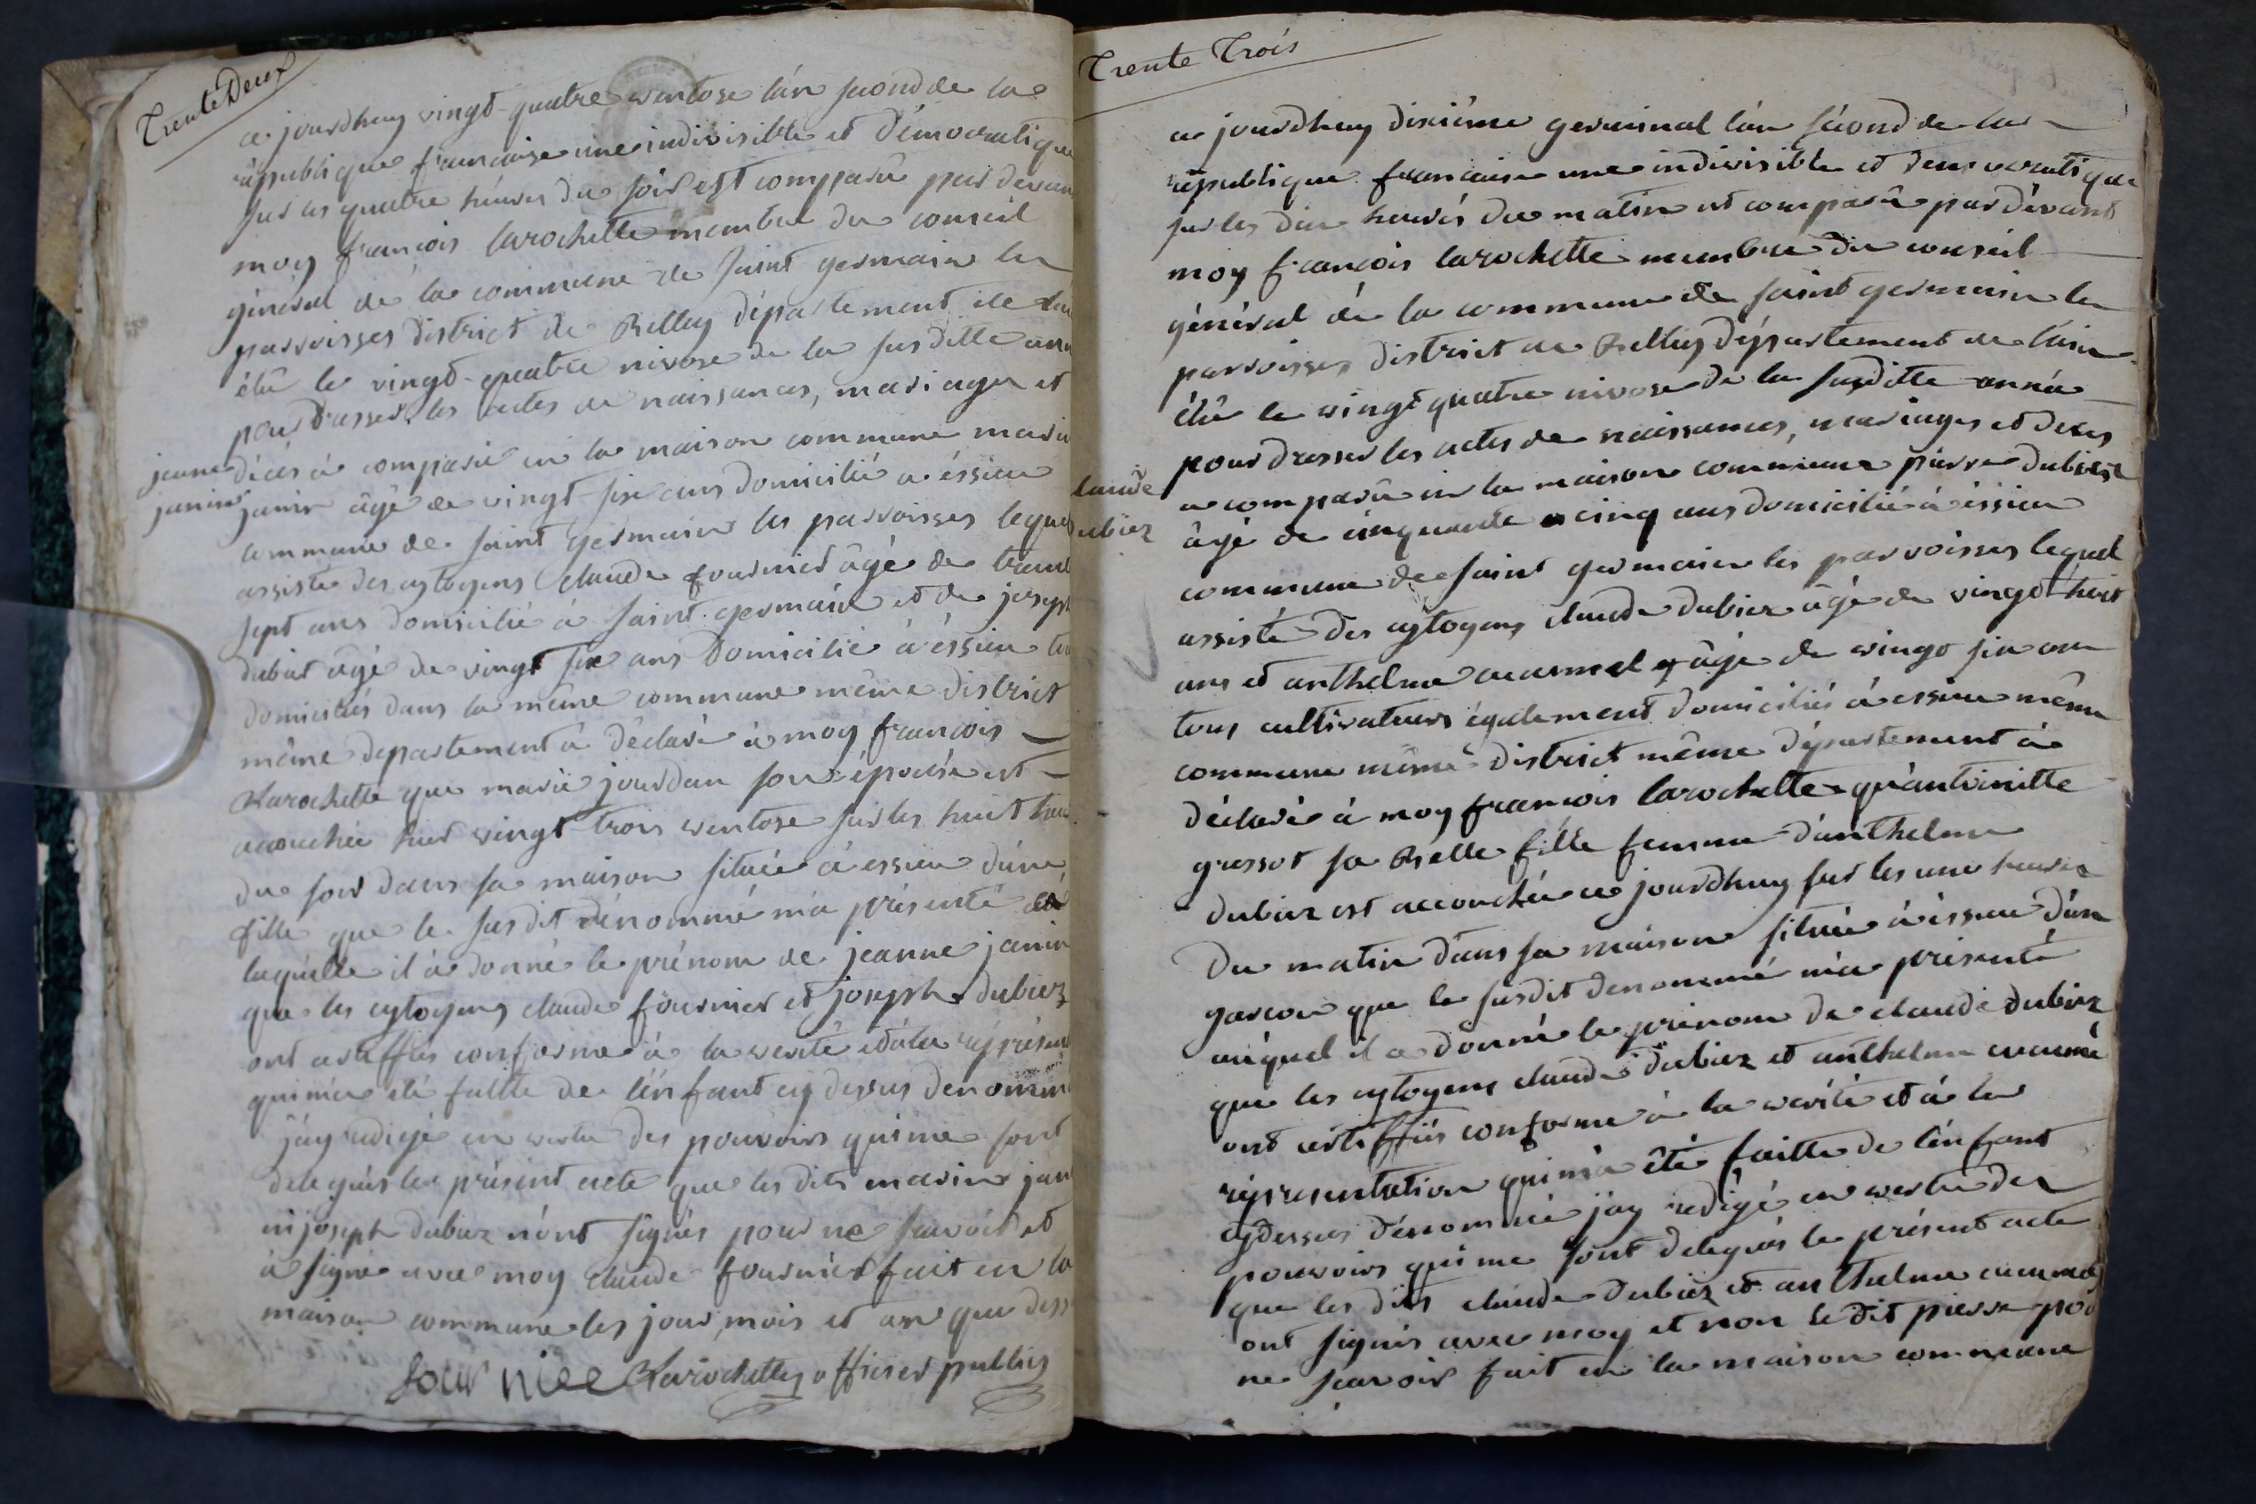 Trente Deux
ce jourdhuy vingt quatre ventose lán second de la
république francaise une indivisible et démocratique
sur les quatre héures du soir est comparû par devan
moy françois larochette membre du conseil
général de la commune de saint germain les
parroisses district de Belley département de
élû le vingt-quatre nivose de la susditte ann
pour dresser les actes de naissances, mariages et
décés à comparû en la maison commune
jeanne
janin
janin âgé de vingt-six ans domicilié a éssieu
commune de saint germain les parroisses leque
assisté des cytoyens claude fournier âgé de trent
sept ans domicilié à saint germain et de joseph
dubiet âgé de vingt six ans domicilié à éssieu
domiciliés dans la même commune même district
même département à déclaré à moy françois
Larochette que marie jourdan son épouse est
accouchée hier vingt trois ventose sur les huit heu
du soir dans sa maison située à essieu dúne
fille que le susdit dénommé m'a présenté
laquelle il à donné le prénom de jeanne janin
que les cytoyens claude fournier et joseph dubiez
ont certiffiés conforme à la verité età la réprésen
qui m'a eté faitte de lénfant cy dessus denomm
j'ay redigé en vertu des pouvoirs qui me sont
delegués le présent acte que les dits marin jan
ni joseph dubiez n'ónt signés pour ne savoir et
à signé avec moy claude fournier fait en la
maison commune les jour, mois et an que dess
fournier Larochette officier public
Trente Trois
ce jourdhuy dixiéme germinal lán second de la
république francaise une indivisible et democratique
sur les dix heurés du matin est comparû par dévant
moy françois larochette membre du conseil
général de la commune de saint germain les
parroisses district de Belley département de láin
élû le vingt quatre nivose de la susditte année
pour dresser les actes de naissances, mariages et deces
a comparû en la maison commune pierre dubiez
laude
ubiez
âgé de cinquante cinq ans domicilié à éssieu
commune de saint germain les parroisses lequel
assisté des cytoyens claude dubiez âgé de vingt huit
ans et anthelme âgé de vingt six ans
tous cultivateurs également domiciliés à essieu même
commune même district même département à
déclaré à moy françois larochette qu'antoinitte
grossot sa Belle fille femme d'anthelme
dubiez est accouchée ce jourdhuy sur les une heures
du matin dans sa maison située à éssieu d'un
garcon que le susdit denommé m'a présenté
auquel il a donné le prenom de claude dubiez
que les cytoyens claude dubiez et anthelme
ont certiffiés conforme à la vérité et à la
réprésentation qui m'a été faitte de lénfant
cydessus dénommé j'ay redigé en vertu des
pouvoirs qui me sont delegués le présent acte
que les dits claude dubiez et anthelme
ont signés avec moy et non le dit pierre pou
ne savoir fait en la maison commune